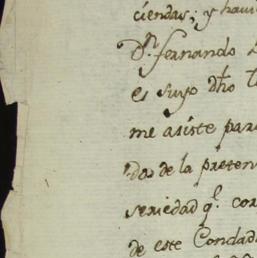 ciendas; y havi
Dn. fernando
es suyo dho
me asiste par
dos de la preten
seriedad q.e cor
de este Condad